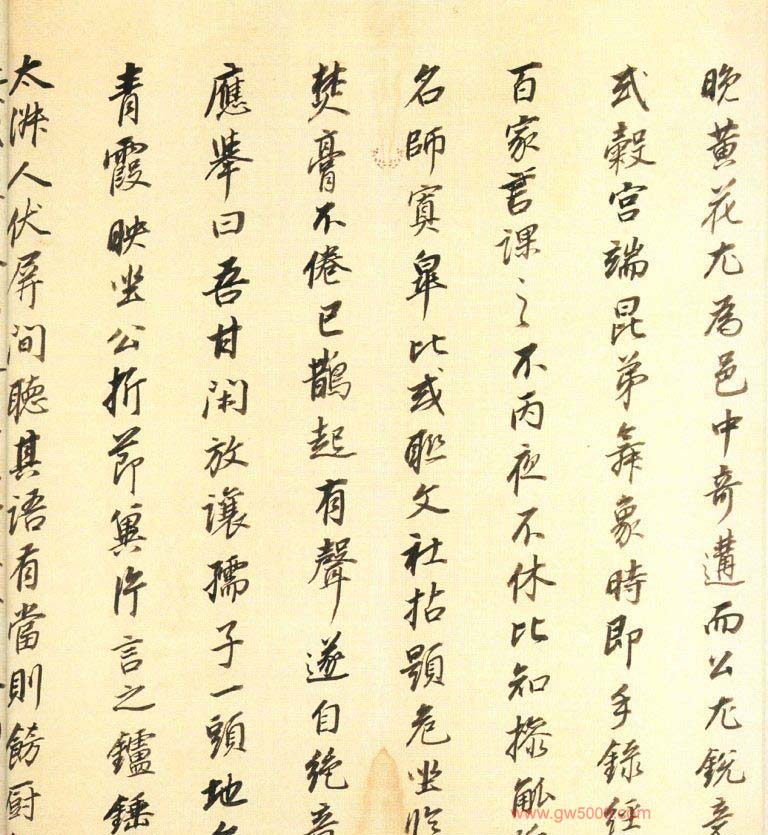 晚黃花尤為邑中奇遘而公尤銳意
式穀宮端昆弟舞象時即手錄經
百家言課之不丙夜不休比知操觚
名師賓皐比或聯文社拈題危坐
焚膏不倦已鵲起有聲遂自絕意
應舉曰吾甘閑放讓孺子一頭地
青霞映坐公折節冀片言之鑪錘
太淑人伏屏間聽其語有當則飭廚
www.gw5000.com